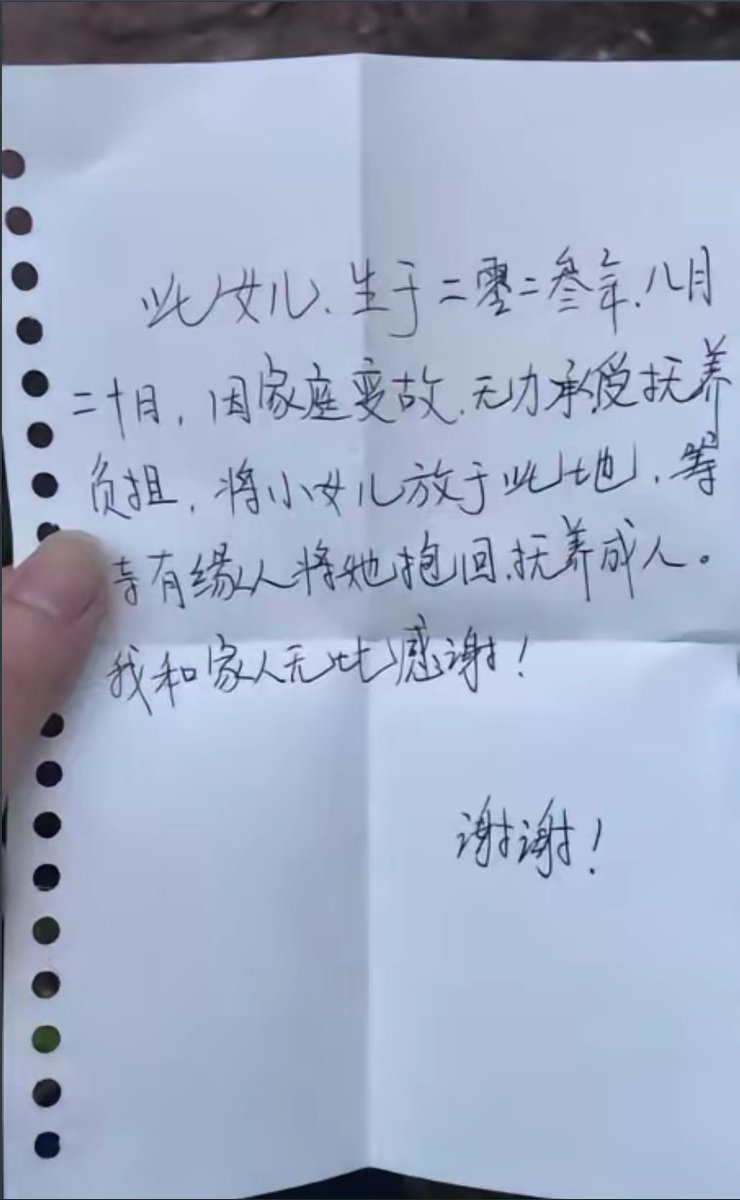 此女儿、生于二零二叁年.八月
二十日，因家庭变故.无力承受抚养
负担，将小女儿放于此地，等
待有缘人将她抱回.抚养成人。
我和家人无比感谢！
谢谢！